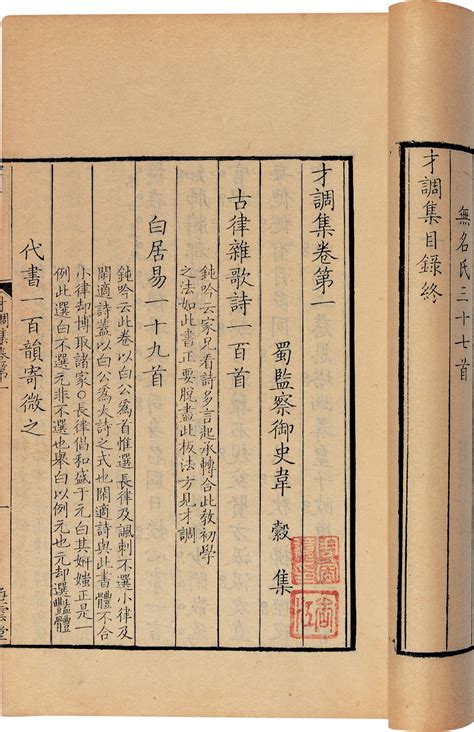 無名氏三十七首
才調集目錄終
才調集卷第一
蜀監察御史韋縠集
古律雜歌詩一百首
鈍吟云家兄看詩多言起承轉合此教初學
之法如此書正要脫盡此板法方見才調
白居易一十九首
鈍吟云此卷以白公為首惟選長律及諷刺不選小律及
閒適詩蓋以白公為大詩之式也閒適詩與此書體不合
小律却博取諸家○長律倡和盛于元白其妍媸正是一
例此選白不選元非不選也舉白以例元也元却選豔體
代書一百韻寄微之